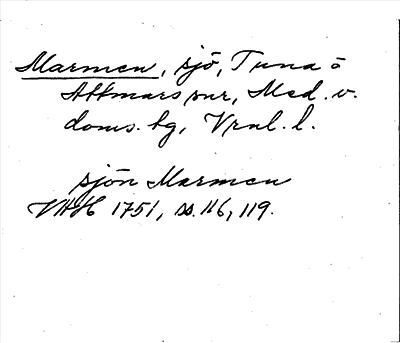 Marmen, sjö, Tuna o
Attmars snr, Med. v.
doms. bg, Vrnl. l.
sjön Marmen
VAH 1751, ss. 116, 119.